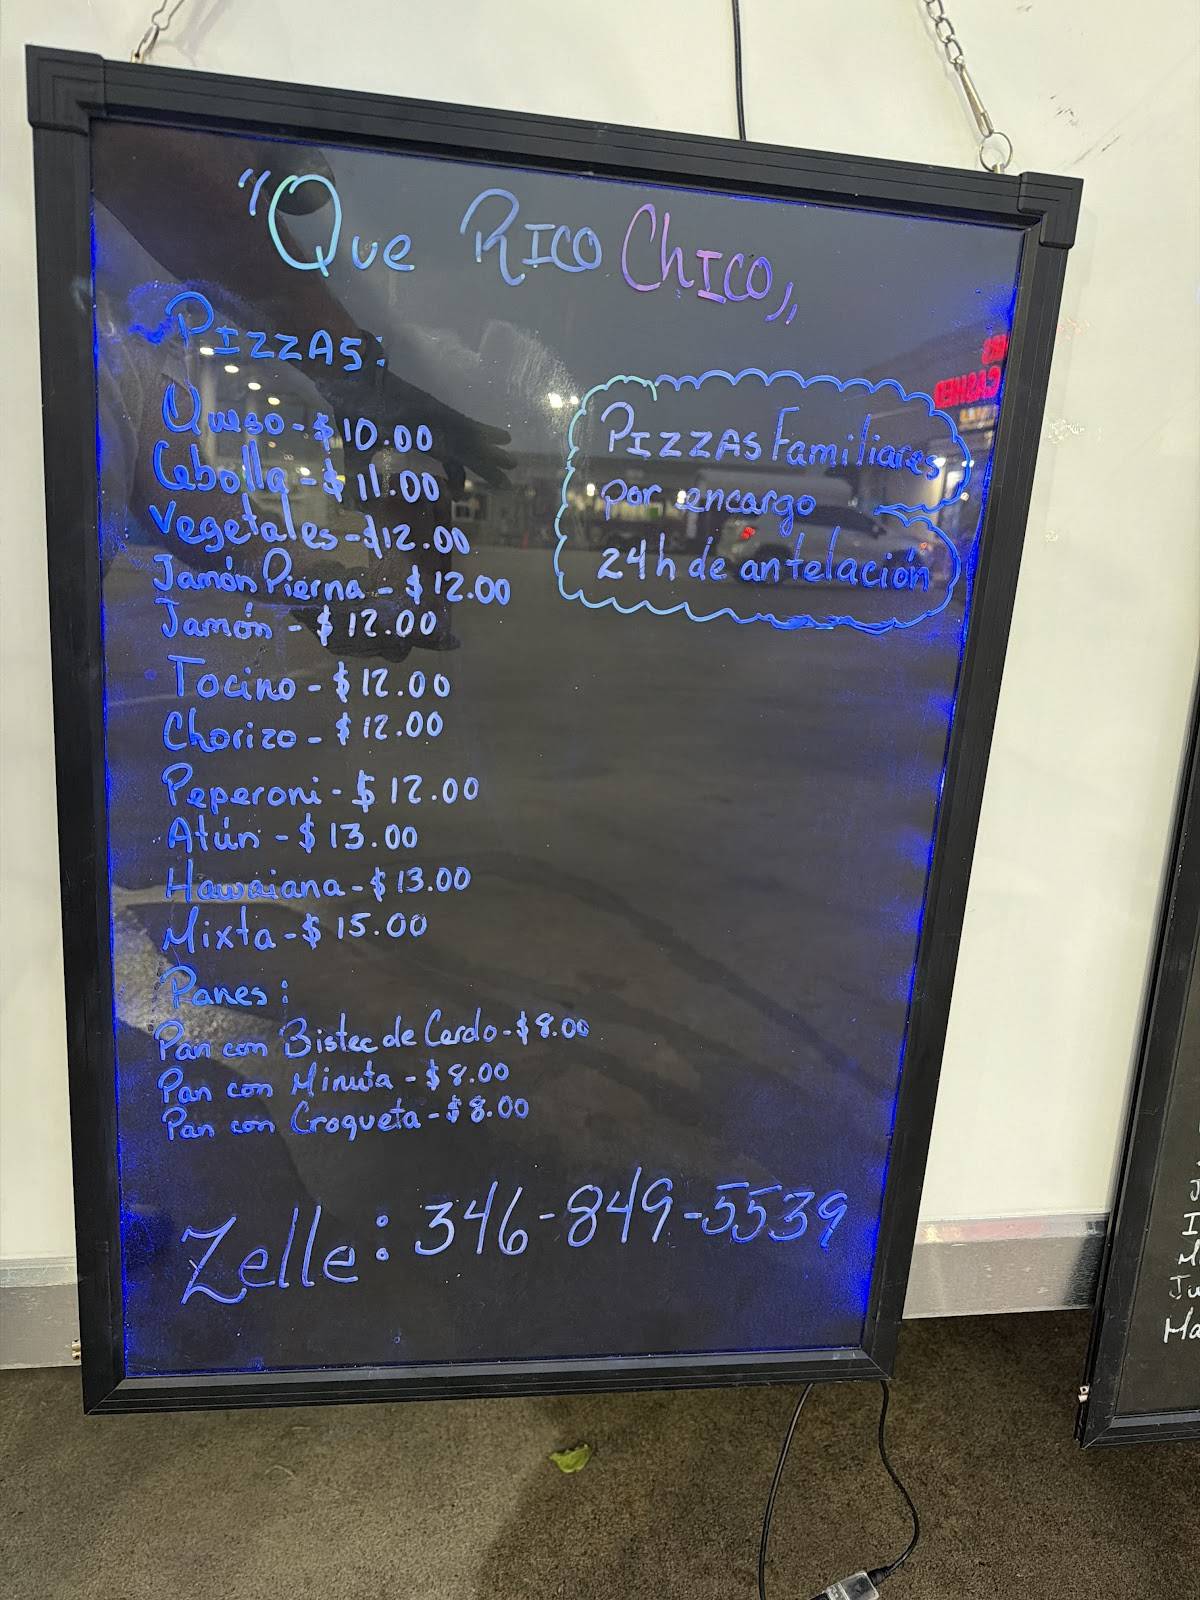 "Que Rico Chico"
PIZZAS:
Queso - $10.00
Cebolla - $11.00
Vegetales - $12.00
Jamón Pierna - $12.00
Jamón - $12.00
Tocino - $12.00
Chorizo - $12.00
Peperoni - $12.00
Atún - $13.00
Hawaiana - $13.00
Mixta - $15.00
Panes:
Pan con Bistec de Cerdo - $8.00
Pan con Minuta - $8.00
Pan con Croqueta - $8.00
Zelle: 346-849-5539
PIZZAS Familiares
por encargo
24h de antelación